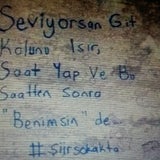 Seviyorsan Git
Koluno Isır,
Saat Yap Ve Bu
Saatten Sonra
"Benimsin" de
# siirsokakta